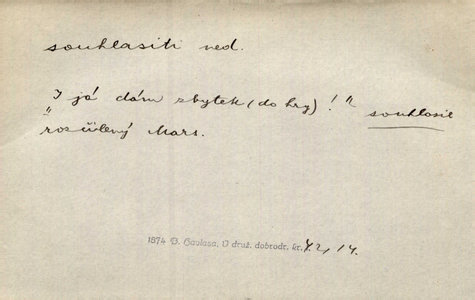 souhlasiti ned.
"I já dám zbytek (do hry)!" souhlasil
rozčilený Mars.
1874 B. Cavlasa, U druž. dobrodr. kr. 2, 14.